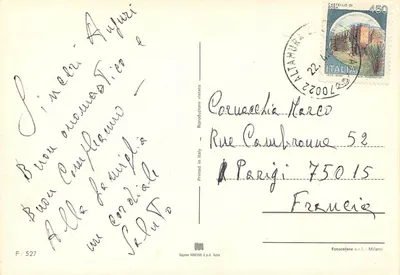 Sinceri Auguri
Buon onomastico e
Buon Compleanno —
Alla famiglia
un cordiale
Saluto
F/527
Printed in Italy
Riproduzione vietata
450
ITALIA
70022 ALTAMURA
22.
Cornacchia Marco
Rue Cambronne 52
Parigi 75015
Francia
Milano